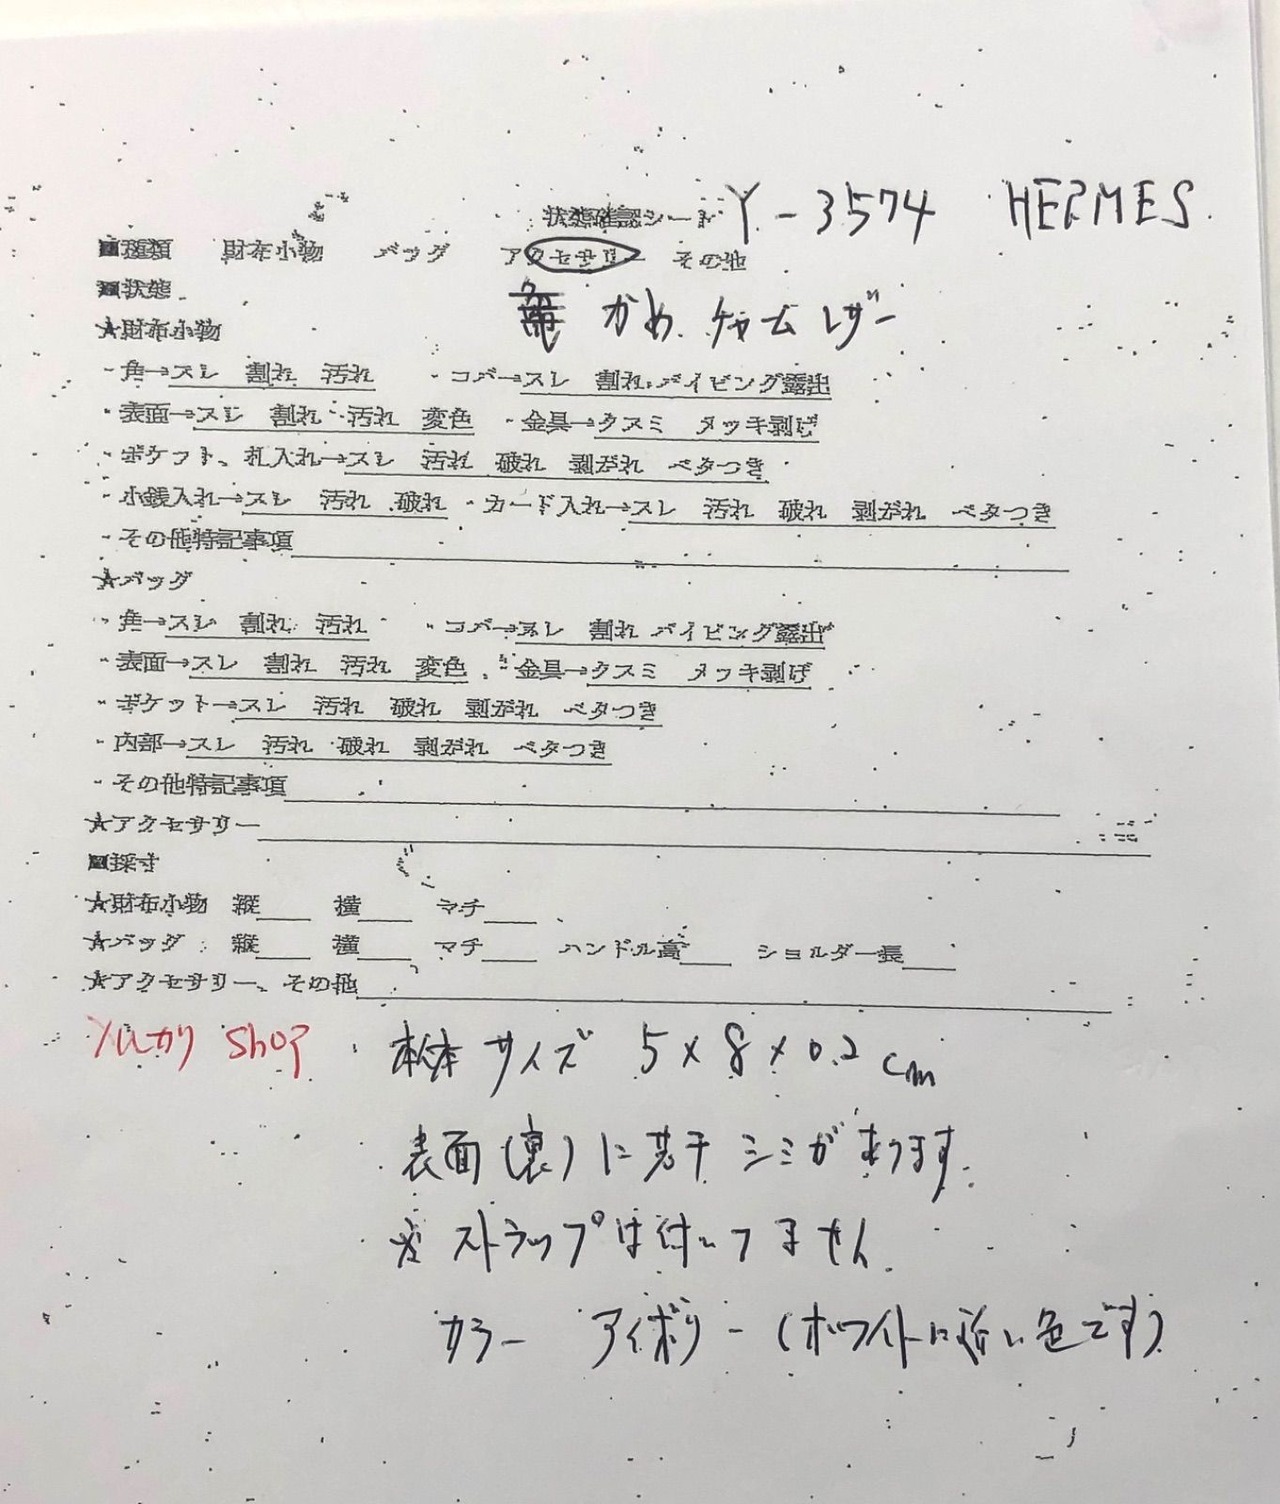 状態確認シート Y-3574 HERMES
■種類 財布小物 バッグ アクセサリー その他
■状態 かめ チャーム レザー
★財布小物
・角→スレ 割れ 汚れ ・コバ→スレ 割れ パイピング露出
・表面→スレ 割れ 汚れ 変色 ・金具→クスミ メッキ剥げ
・ポケット、札入れ→スレ 汚れ 破れ 剥がれ ベタつき
・小銭入れ→スレ 汚れ 破れ ・カード入れ→スレ 汚れ 破れ 剥がれ ベタつき
・その他特記事項
★バッグ
・角→スレ 割れ 汚れ ・コバ→スレ 割れ パイピング露出
・表面→スレ 割れ 汚れ 変色 ・金具→クスミ メッキ剥げ
・ポケット→スレ 汚れ 破れ 剥がれ ベタつき
・内部→スレ 汚れ 破れ 剥がれ ベタつき
・その他特記事項
★アクセサリー
■採寸
★財布小物 縦 横 マチ
★バッグ 縦 横 マチ ハンドル高 ショルダー長
★アクセサリー、その他
メルカリ Shop 本体サイズ 5×8×0.2cm
表面(裏)に若干シミがあります。
※ストラップは付いてません。
カラー アイボリー(ホワイトに近い色です)